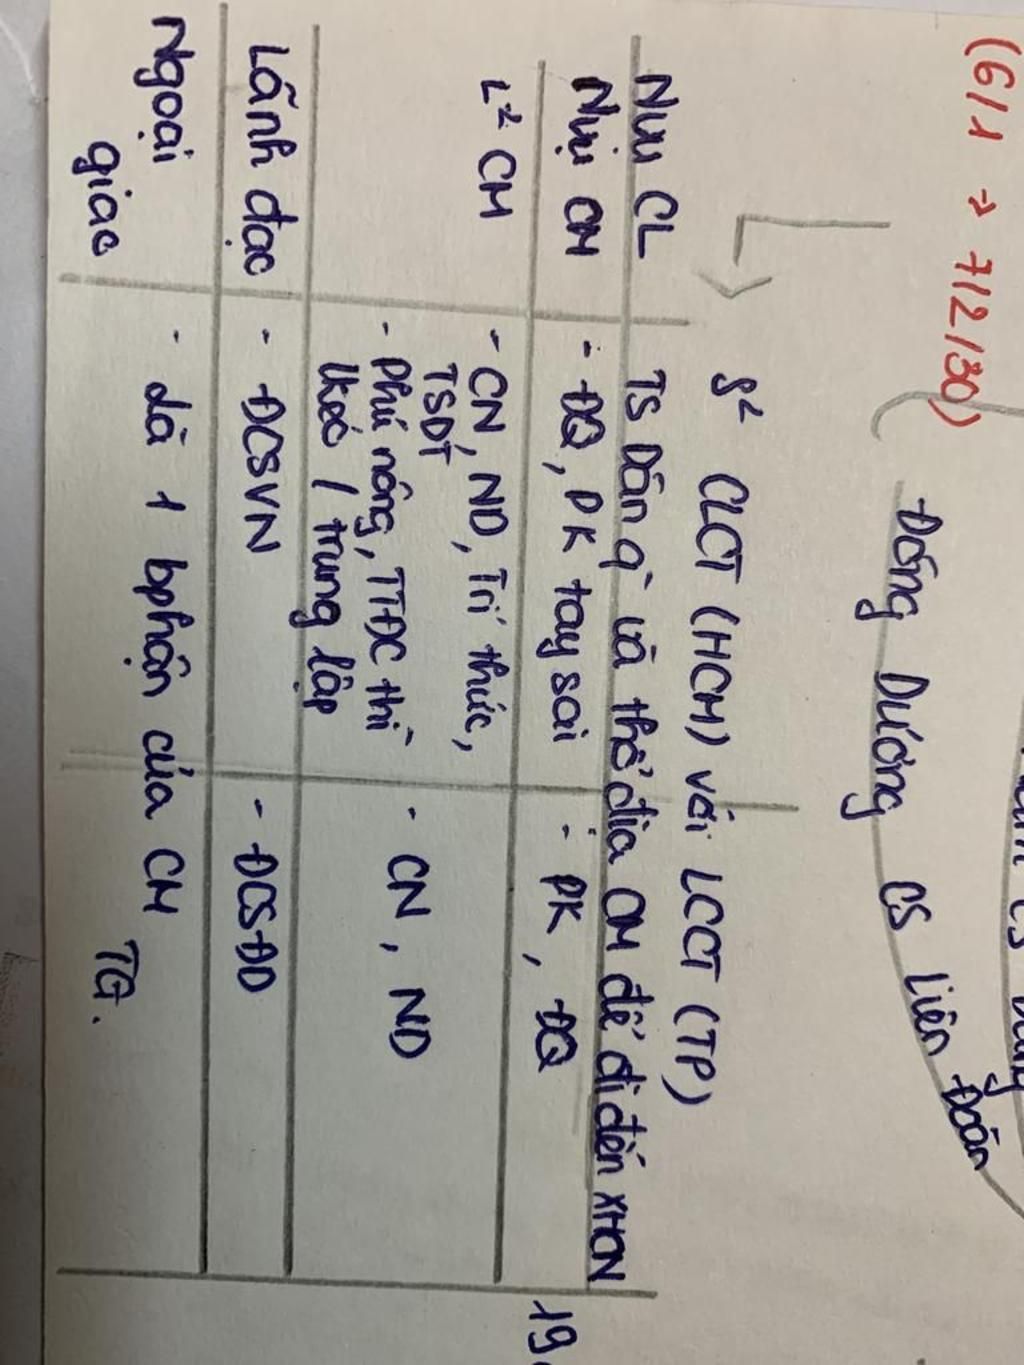 (6/1 → 7/2/30)
Đông Dương CS Liên Đoàn
S² CLCT (HCM) với LCCT (TP)
Nvụ CL TS Dân q` và thổ địa CM để đi đến XHCN
Nvụ CM - ĐQ, PK tay sai - PK, ĐQ
L² CM - CN, ND, Trí thức,
TSDT
- Phú nông, TTĐC thì
lkéo / trung lập - CN, ND
Lãnh đạo - ĐCSVN - ĐCSĐD
Ngoại
giao - là 1 bphận của CM TG.
19